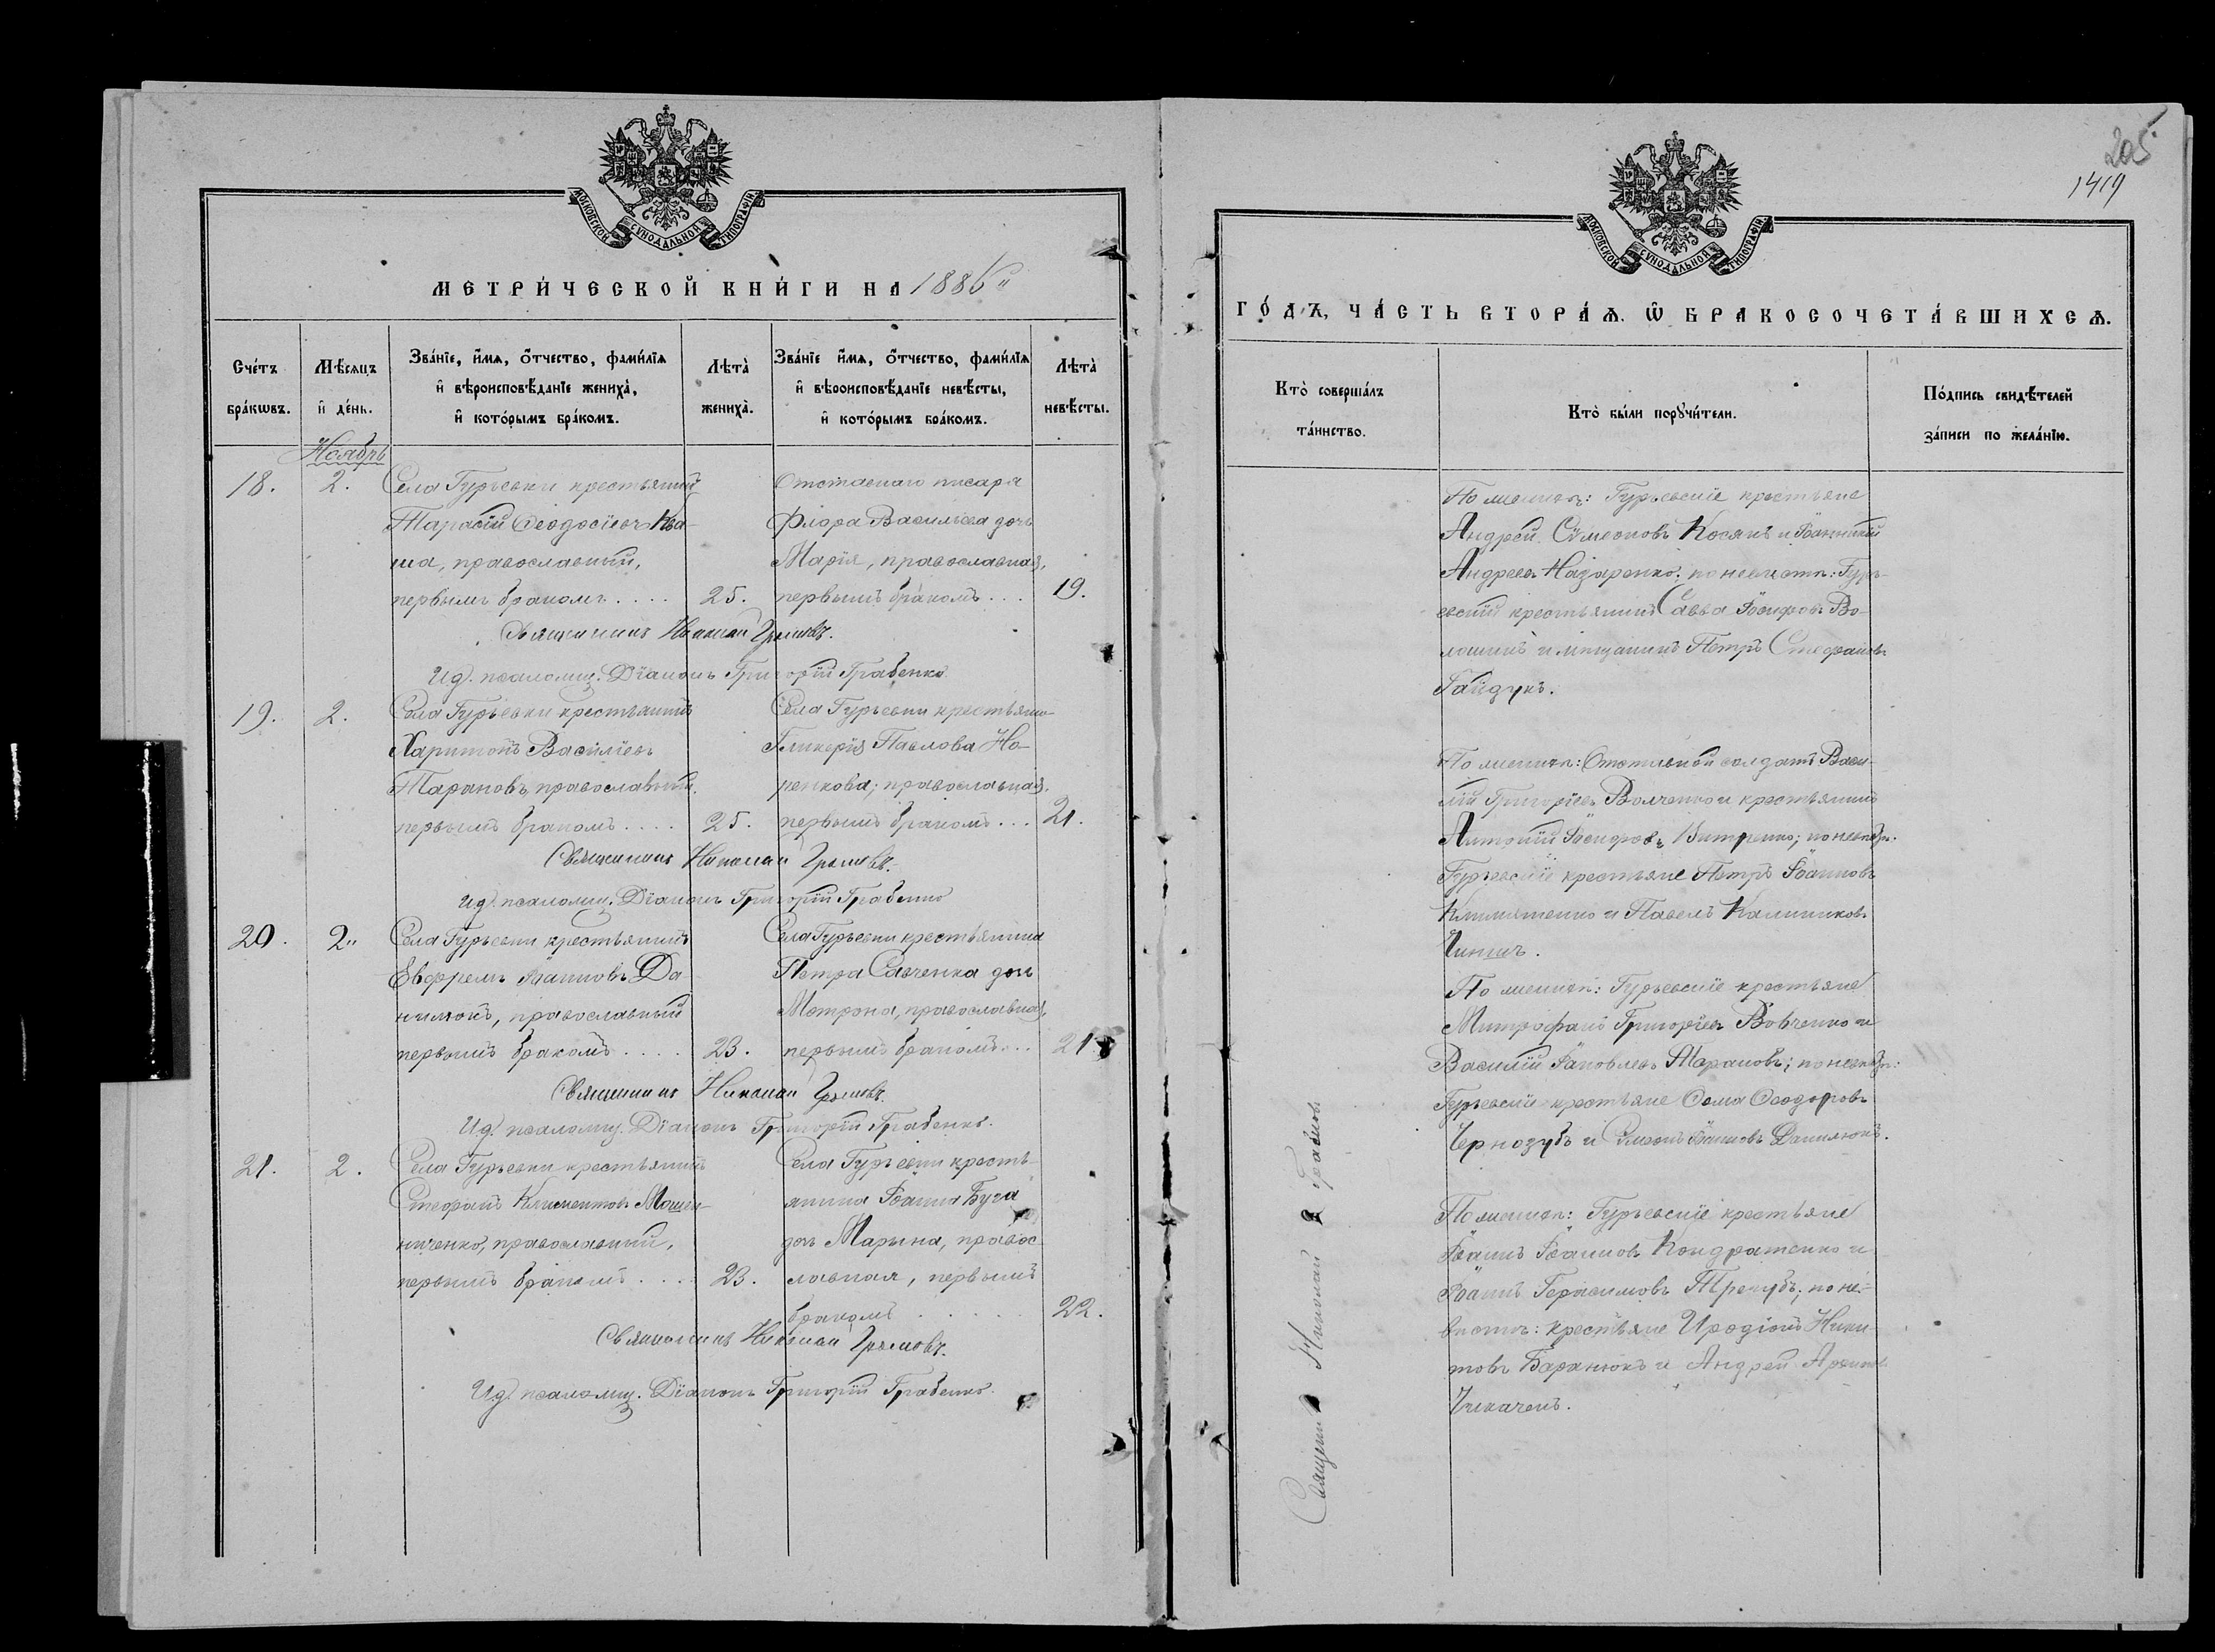 МОСКОВСКОЙ СѴНОДАЛЬНОЙ ТИПОГРАФІИ
МЕТРИ́ЧЕСКОЙ КНИ́ГИ НА 1886"
Сче́тъ бра́кѡвъ.
Мѣ́сяцъ и҆ де́нь.
Зва́нїе, и҆́мѧ, ѻ҆́тчество, фами́лїѧ
и҆ вѣроисповѣ́данїе жениха̀,
и҆ кото́рымъ бра́комъ.
Лѣта̀ жениха̀.
Зва́нїе и҆́мѧ, ѻ҆́тчество, фами́лїѧ
и҆ вѣроисповѣ́данїе невѣ́сты,
и҆ кото́рымъ бра́комъ.
Лѣта̀ невѣ́сты.
Ноябрь
18. 2.
Села Гурьевки крестьянинъ
Тарасій Ѳеодосіевъ Ква-
ша, православный,
первымъ бракомъ .... 25.
Отставнаго писаря
Флора Васильева дочь
Марія, православная,
первымъ бракомъ ... 19.
Священникъ Николай
Ид. псаломщ. Діаконъ Григорій Грабенко
19. 2.
Села Гурьевки крестьянинъ
Харитонъ Василіевъ
Тарановъ, православный.
первымъ бракомъ .... 25.
Села Гурьевки крестьянка
Гликерія Павлова На-
ренкова; православная,
первымъ бракомъ ... 21.
Священникъ Николай
Ид. псаломщ. Діаконъ Григорій Грабенко
20. 2"
Села Гурьевки крестьянинъ
Евфремъ Іоанновъ Да-
нилюкъ, православный
первымъ бракомъ .... 23.
Села Гурьевки крестьянина
Петра Савченка дочь
Матрона, православная,
первымъ бракомъ ... 21
Священникъ Николай
Ид. псаломщ. Діаконъ Григорій Грабенко.
21. 2.
Села Гурьевки крестьянинъ
Стефанъ Климентовъ
ниченко, православный,
первымъ бракомъ .... 23.
Села Гурьевки кресть-
янина Іоанна Буга
дочь Марьина, правос-
лавная, первымъ
бракомъ ..... 22.
Священникъ Николай
Ид. псаломщ. Діаконъ Григорій Грабенко.
205.
1419
МОСКОВСКОЙ СѴНОДАЛЬНОЙ ТИПОГРАФІИ
ГО́ДЪ, ЧА́СТЬ ВТОРА́Ѧ. Ѽ БРАКОСОЧЕТА́ВШИХСѦ.
Кто̀ соверша́лъ
та́инство.
Кто̀ бы́ли порꙋчи́тели.
По́дпись свидѣ́телей
за́писи по жела́нїю.
По женихѣ: Гурьевскіе крестьяне
Андрей Сѵмеоновъ Косякъ и Іоанникій
Андреевъ Назаренко; по невѣстѣ: Гурь-
евскій крестьянинъ Савва Іосифовъ Во-
лошинъ и мѣщанинъ Петръ Стефановъ
Гайдукъ.
По женихѣ: Отставной солдатъ Васи-
лій Григоріевъ Волченко и крестьянинъ
Антоній Іосифовъ Витренко; по невѣстѣ:
Гурьевскіе крестьяне Петръ Іоанновъ
и Павелъ Калиниковъ
По женихѣ: Гурьевскіе крестьяне
Митрофанъ Григоріевъ Вовченко и
Василій Іаковлевъ Тарановъ; по невѣстѣ:
Гурьевскіе крестьяне Ѳома Ѳеодоровъ
Чернозубъ и Симеонъ Іоанновъ Данилюкъ.
По женихѣ: Гурьевскіе крестьяне
Іоаннъ Іоанновъ Кондратенко и
Іоаннъ Герасимовъ Трегубъ; по не-
вѣстѣ: крестьяне Иродіонъ Ники-
товъ Баранюкъ и Андрей
Чикаченъ.
Николай